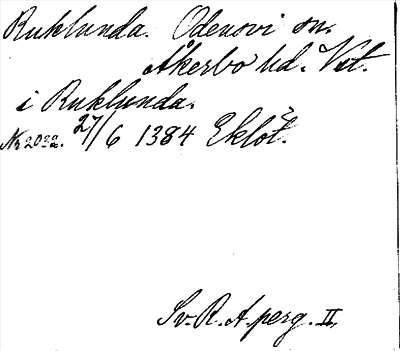 Ruklunda. Odensvi sn.
Åkerbo hd. Vst.
i Ruklunda.
Nr 2032. 27/6 1384 Eklöt.
Sv. R. A. perg. II,